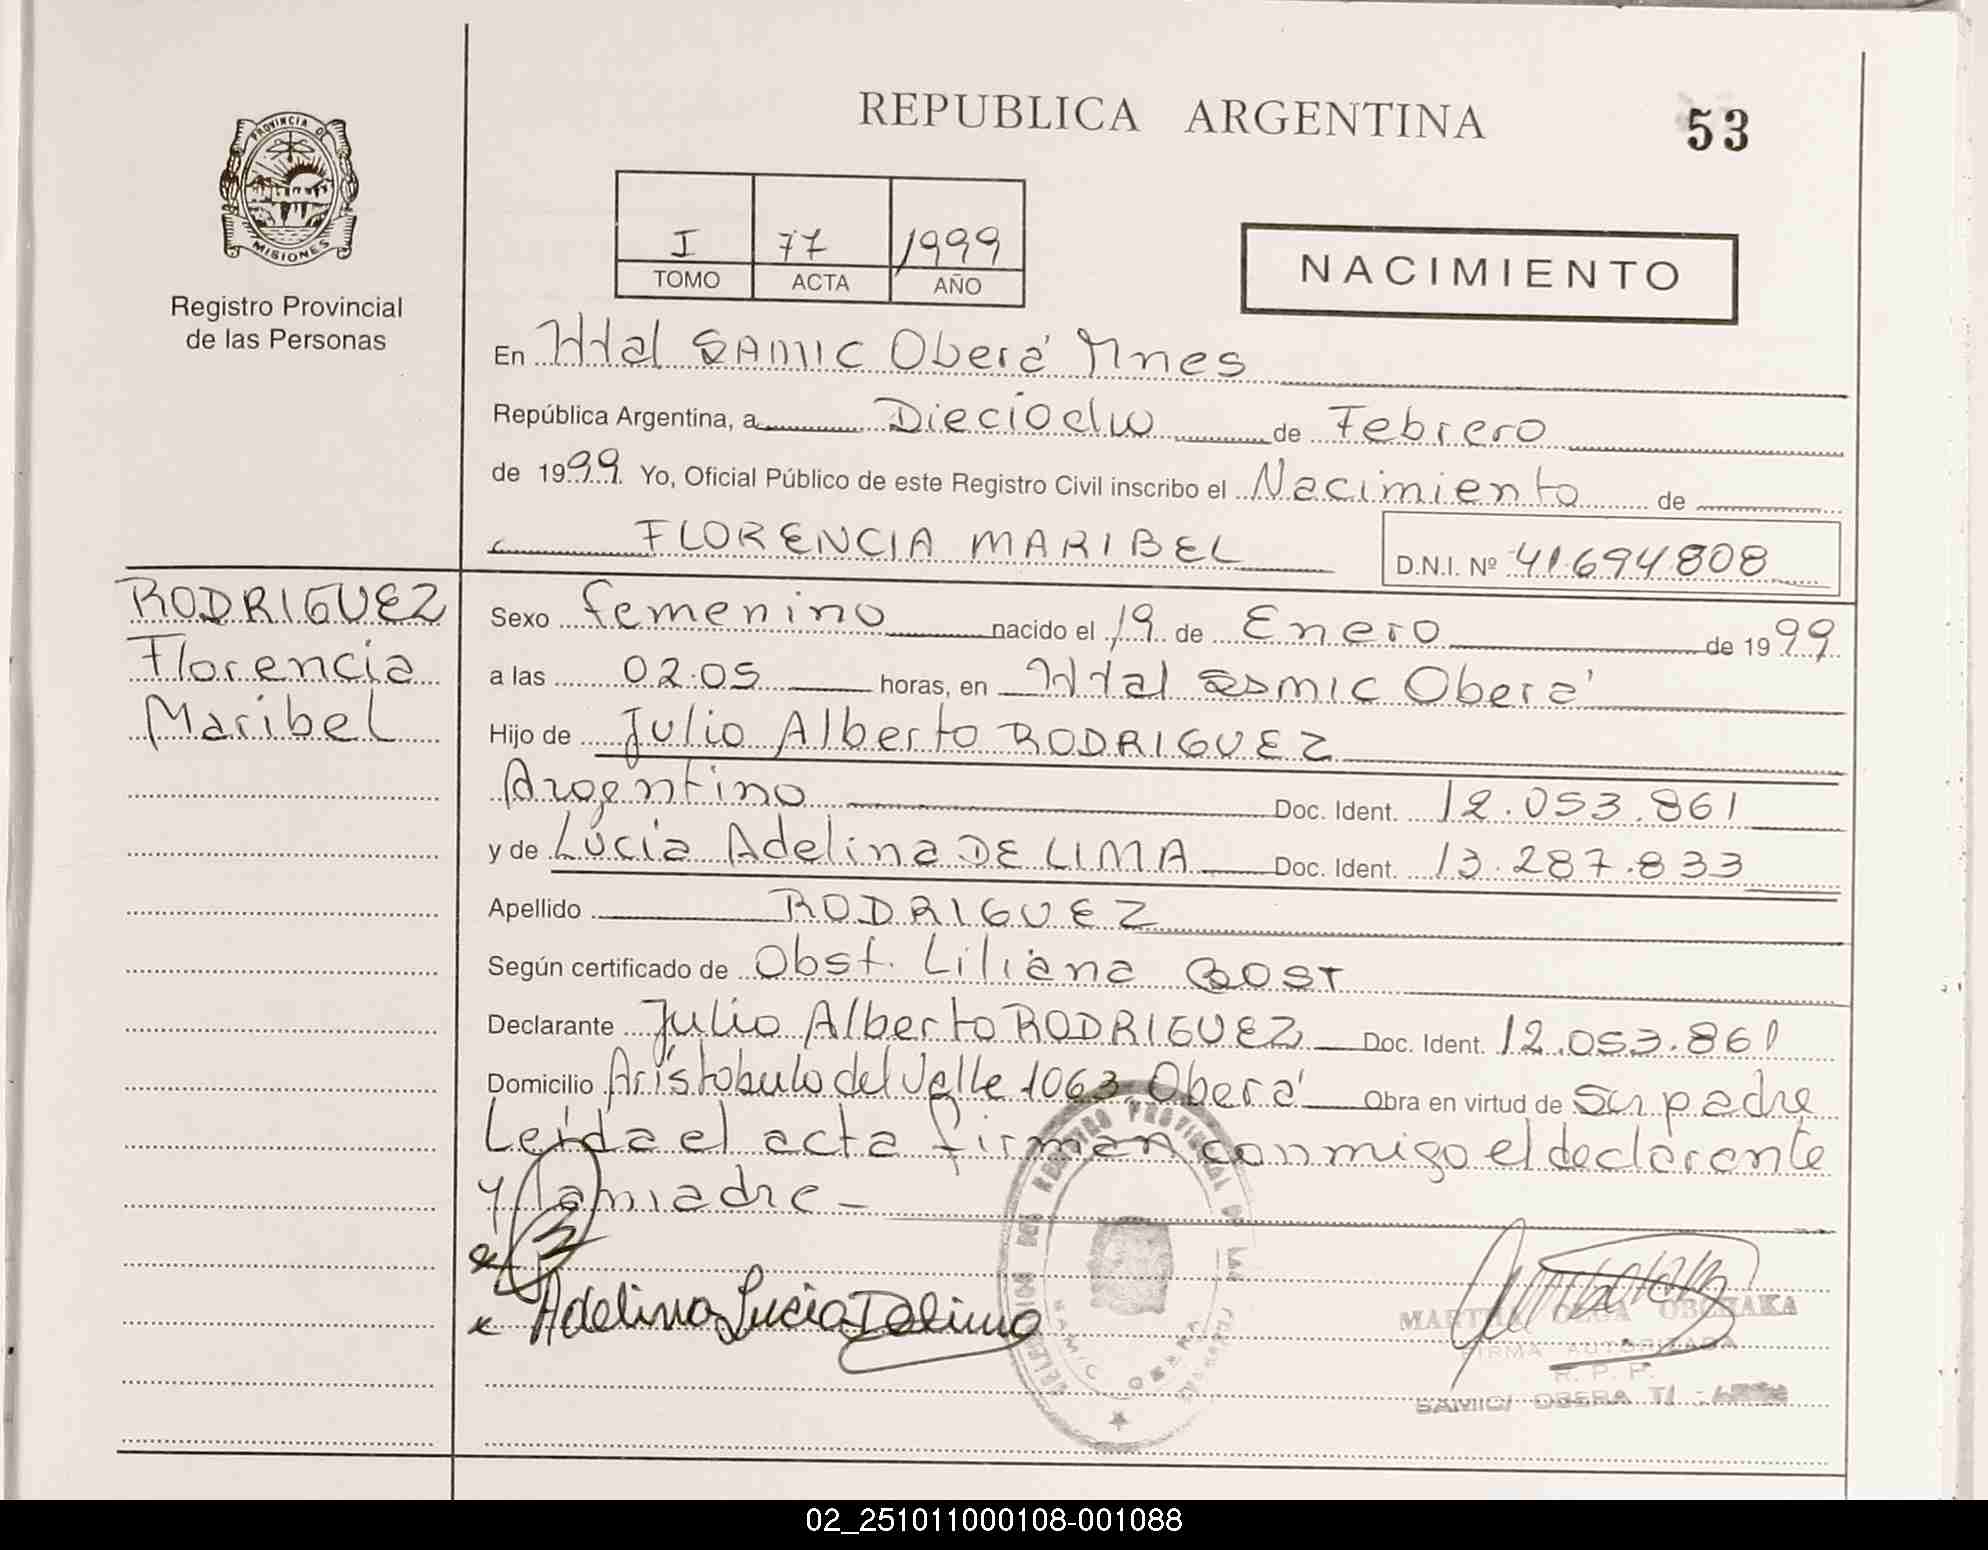 REPUBLICA ARGENTINA
53
PROVINCIA DE
MISIONES
Registro Provincial
de las Personas
I 77 1999
TOMO ACTA AÑO
NACIMIENTO
En Htal SAMIC Oberá Mnes
República Argentina, a Dieciocho de Febrero
de 1999 Yo, Oficial Público de este Registro Civil inscribo el Nacimiento de
FLORENCIA MARIBEL
D.N.I. Nº 41.694.808
RODRIGUEZ
Florencia
Maribel
Sexo femenino nacido el 19 de Enero de 1999
a las 02.05 horas, en Httal Samic Oberá
Hijo de Julio Alberto RODRIGUEZ
Argentino Doc. Ident. 12.053.861
y de Lucia Adelina DE LIMA Doc. Ident. 13.287.833
Apellido RODRIGUEZ
Según certificado de Obst. Liliana BOST
Declarante Julio Alberto RODRIGUEZ Doc. Ident. 12.053.861
Domicilio Aristobulo del Valle 1063 Oberá Obra en virtud de Su padre
Leida el acta firman conmigo el declarante
y la madre -
Adelina Lucia Delima
REGISTRO PROVINCIAL DE LAS
SAMIC OBERA
MARTHA OLGA
FIRMA AUTORIZADA
R. P. P.
SAMIC OBERA
02_251011000108-001088